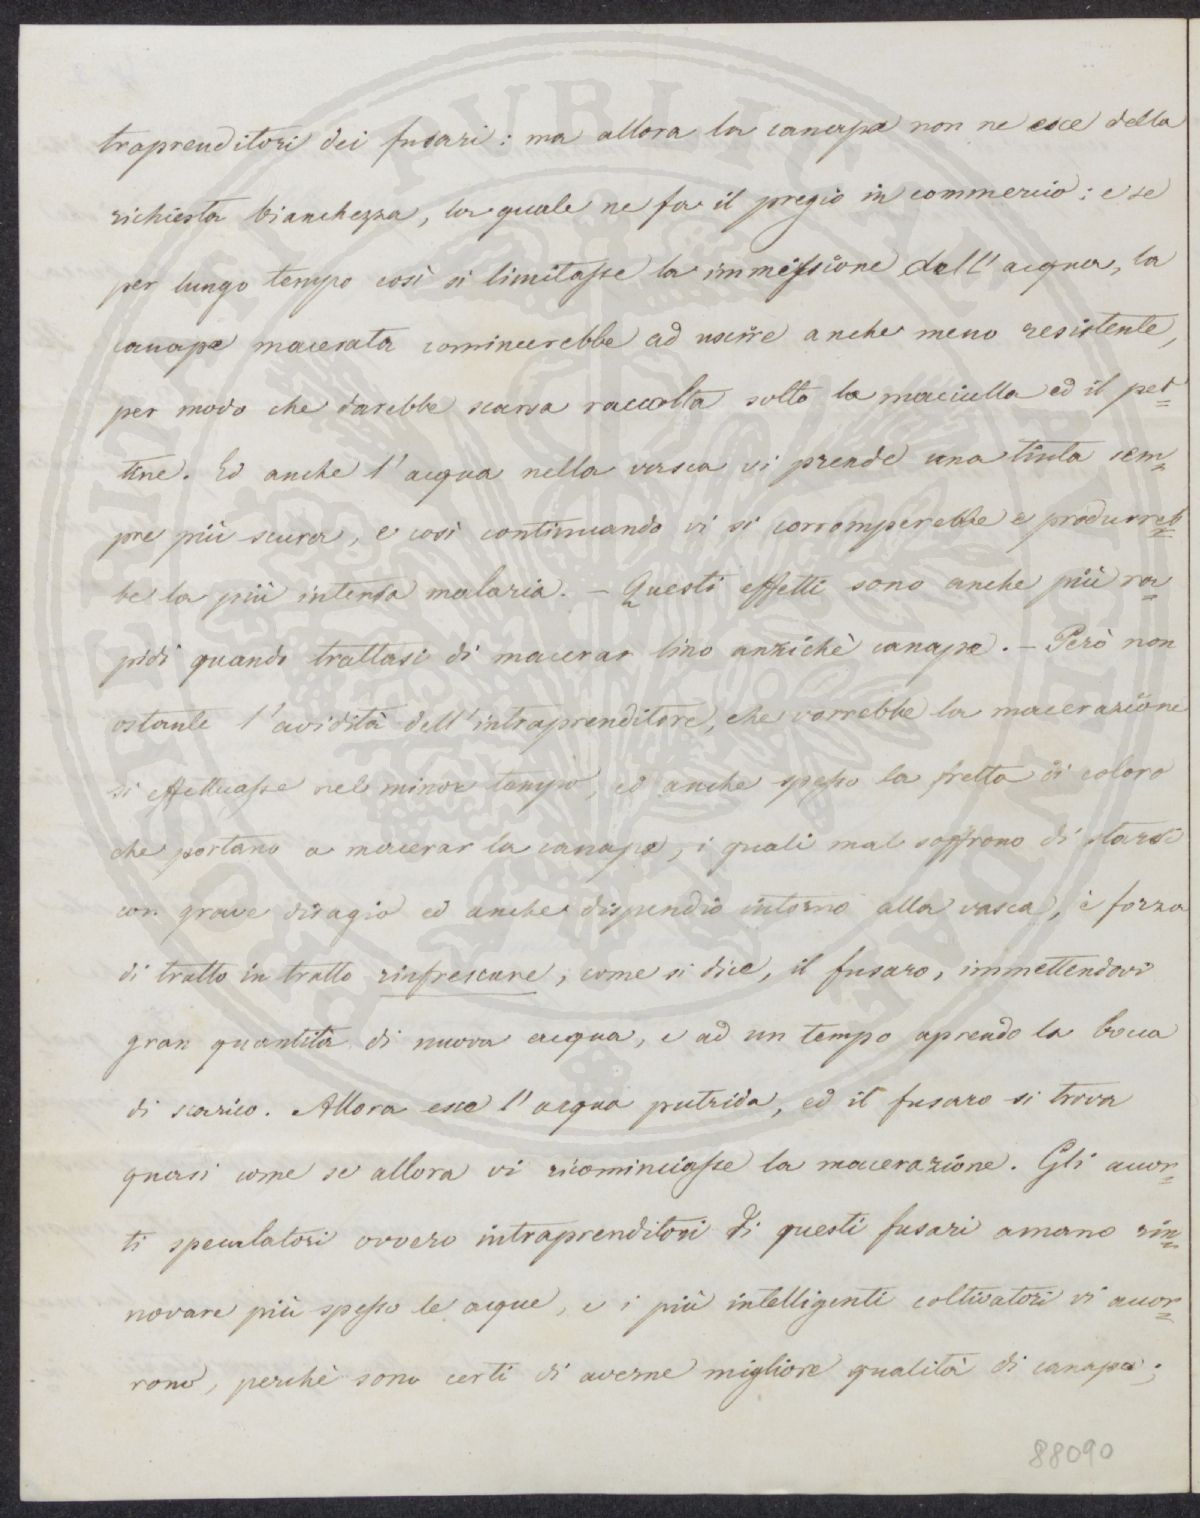 traprenditori dei fusari: ma allora la canape non ne esce della
richiesta bianchezza, la quale ne fa il pregio in commercio: e se
per lungo tempo così si limitasse la immissione dell'acqua, la
canape macerata comincerebbe ad uscire anche meno resistente,
per modo che darebbe scarsa raccolta sotto la maciulla ed il pet=
tine. Ed anche l'acqua nella vasca vi prende una tinta sem=
pre più scura, e così continuando vi si corromperebbe e produrreb=
be la più intensa malaria. – Questi effetti sono anche più ra=
pidi quando trattasi di macerar lino anzichè canape. – Però non
ostante l'avidità dell'intraprenditore, che vorrebbe la macerazione
si effettuasse nel minor tempo, ed anche spesso la fretta di coloro
che portano a macerar la canape, i quali mal soffrono di starsi
con grave disagio ed anche dispendio intorno alla vasca, è forza
di tratto in tratto rinfrescare, come si dice, il fusaro, immettendovi
gran quantità di nuova acqua, e ad un tempo aprendo la bocca
di scarico. Allora esce l'acqua putrida, ed il fusaro si trova
quasi come se allora vi ricominciasse la macerazione. Gli accor=
ti speculatori ovvero intraprenditori di questi fusari amano rin=
novare più spesso le acque, e i più intelligenti coltivatori vi accor=
rono, perchè sono certi di averne migliore qualità di canape;
88090